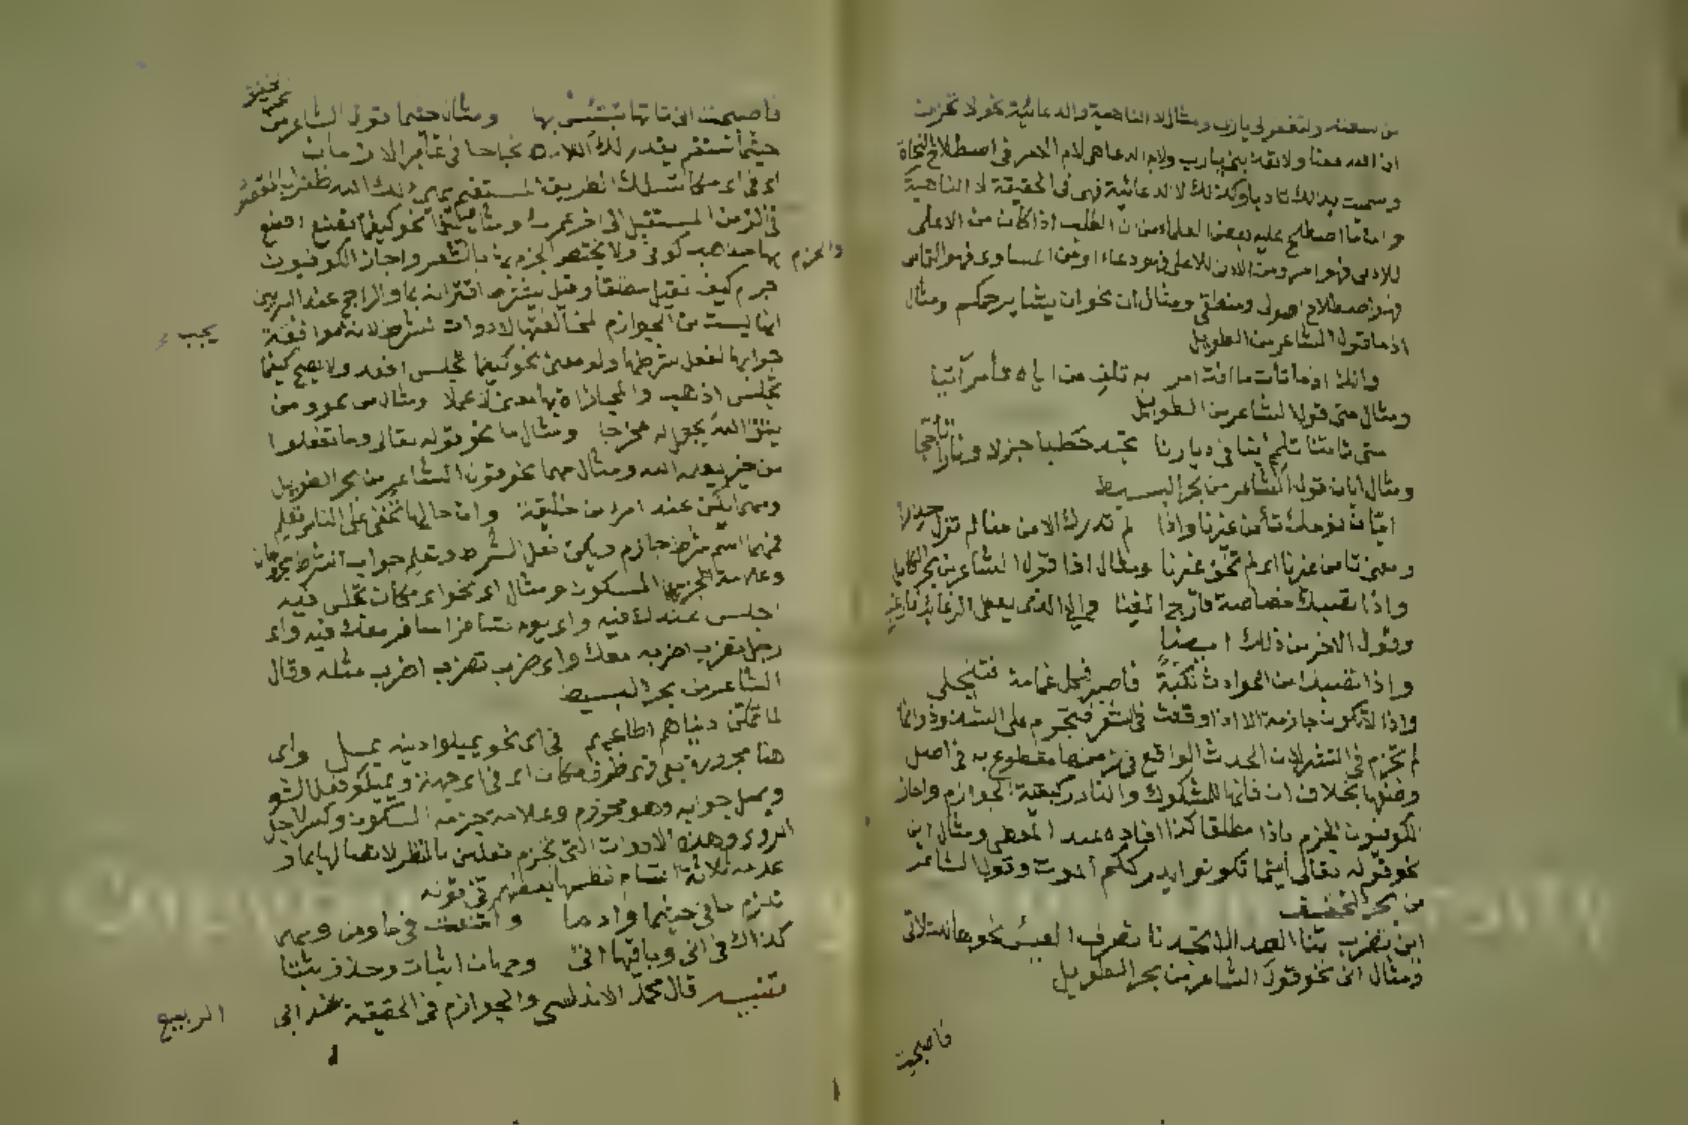 من سعته ولتغفر لي يارب ومثال لا الناهية والدعائية نحو لا تحزن
ان الله معنا ولا تقديني يارب ولام الدعاهي لام الامر في اصطلاح النحاة
وسميت بذالك تادبا وكذلك لا الدعائية فهي في الحقيقة لا الناهية
واما ما اصطلح عليه بعض العلماء من ان الطلب اذا كان من الاعلى
للادنى فهو امر ومن الادنى للاعلى فهو دعاء او من المساوى فهو التماس
فهو اصطلاح اصولى ومنطقى ومثال ان نحو ان يشا يرحمكم ومثال
اذ ما قول الشاعر من الطويل
وانك اذ ما تات ما انت امر به تلف من اياه تأمر آتيا
ومثال متى قول الشاعر من الطويل
متى تأتنا تلمم بنا في ديارنا تجد حطبا جزلا ونارا تأججا
ومثال ايان قول الشاعر من بحر البسيط
ايان نؤمنك تأمن غيرنا واذا لم تدرك الامن منا لم تزل حذرا
ومعنى تامن غيرنا اى لم تخف غيرنا ومثال اذا قول الشاعر من بحر الكامل
واذا تصبك خصاصة فارج الغنى والى الذى يعطى الرغائب فارغب
وقول الاخر من ذلك ايضا
واذا تصبك من الحوادث نكبة فاصبر فكل غمامة فستنجلى
واذا لا تكون جازمة الا اذا وقعت في الشعر فتجزم على الشذوذ وانما
لم تجزم في النثر لان الحدث الواقع في زمنها مقطوع به في اصل
وضعها بخلاف ان فانها للمشكوك والنادر كبقية الجوازم واجاز
الكوفيون الجزم باذا مطلقا كذا افاده عبد المعطى ومثال اين
نحو قوله تعالى أينما تكونوا يدرككم الموت وقول الشاعر
من بحر الخفيف
اين تضرب بنا العداة تجدنا نصرف العيس نحوها للتلاقى
ومثال انى نحو قول الشاعر من بحر الطويل
فاصبحت
فاصبحت انى تاتها تبتئس بها ومثال حيثما قول الشاعر من
بحر الخفيف
حيثما تستقم يقدر لك الله نجاحا في غابر الازمان
اى في اى مكان تسلك الطريق المستقيم يهيئ لك الله ظفرا بالمقصد
في الزمن المستقبل الى اخر عمرك ومثال كيفما نحو كيفما تصنع اصنع
والجزم بها مذهب كوفى ولا يختص الجزم بها بالشعر واجاز الكوفيون
جزم كيف قيل مطلقا وقيل بشرط اقترانه بما والراجح عند البصريين
انها ليست من الجوازم لمخالفتها لادوات الشرط لانه يجب موافقة
جوابها لفعل شرطها ولو معنى نحو كيفما تجلس اقعد ولا يصح كيفما
تجلس اذهب والمجازاة بها معنى لا عملا ومثال من نحو ومن
يتق الله يجعل له مخرجا ومثال ما نحو قوله تعالى وما تفعلوا
من خير يعلمه الله ومثال مهما نحو قول الشاعر من بحر الطويل
ومهما تكن عند امرء من خليقة وان خالها تخفى على الناس تعلم
فمهما اسم شرط جازم وتكن فعل الشرط وتعلم جواب الشرط مجزومان
وعلامة الجزم السكون ومثال اى نحو اى مكان تجلس فيه
اجلس عندك فيه واى يوم تسافر اسافر معك فيه واى
رجل تضرب اضربه معك واى ضرب تضرب اضرب مثله وقال
الشاعر من بحر البسيط
لما تمكن دنياهم اطاعهم في اى نحو يميلوا دينه يميل واى
هنا مجرورة بفي وهى ظرف مكان اى في اى جهة ويميلوا فعل الشرط
ويمل جوابه وهو مجزوم وعلامة جزمه السكون وكسر لاجل
الروى وهذه الادوات التى تجزم فعلين بالنظر لاتصالها بما و
عدمه ثلاثة اقسام نظمها بعضهم في قوله
تلزم ما في حيثما واذ ما وامتنعت في ما ومن ومهما
كذاك في انى وباقيها اتى وجهان اثبات وحذف ثبتا
تنبيه قال محمد الاندلسى والجوازم في الحقيقة عند ابى
الربيع